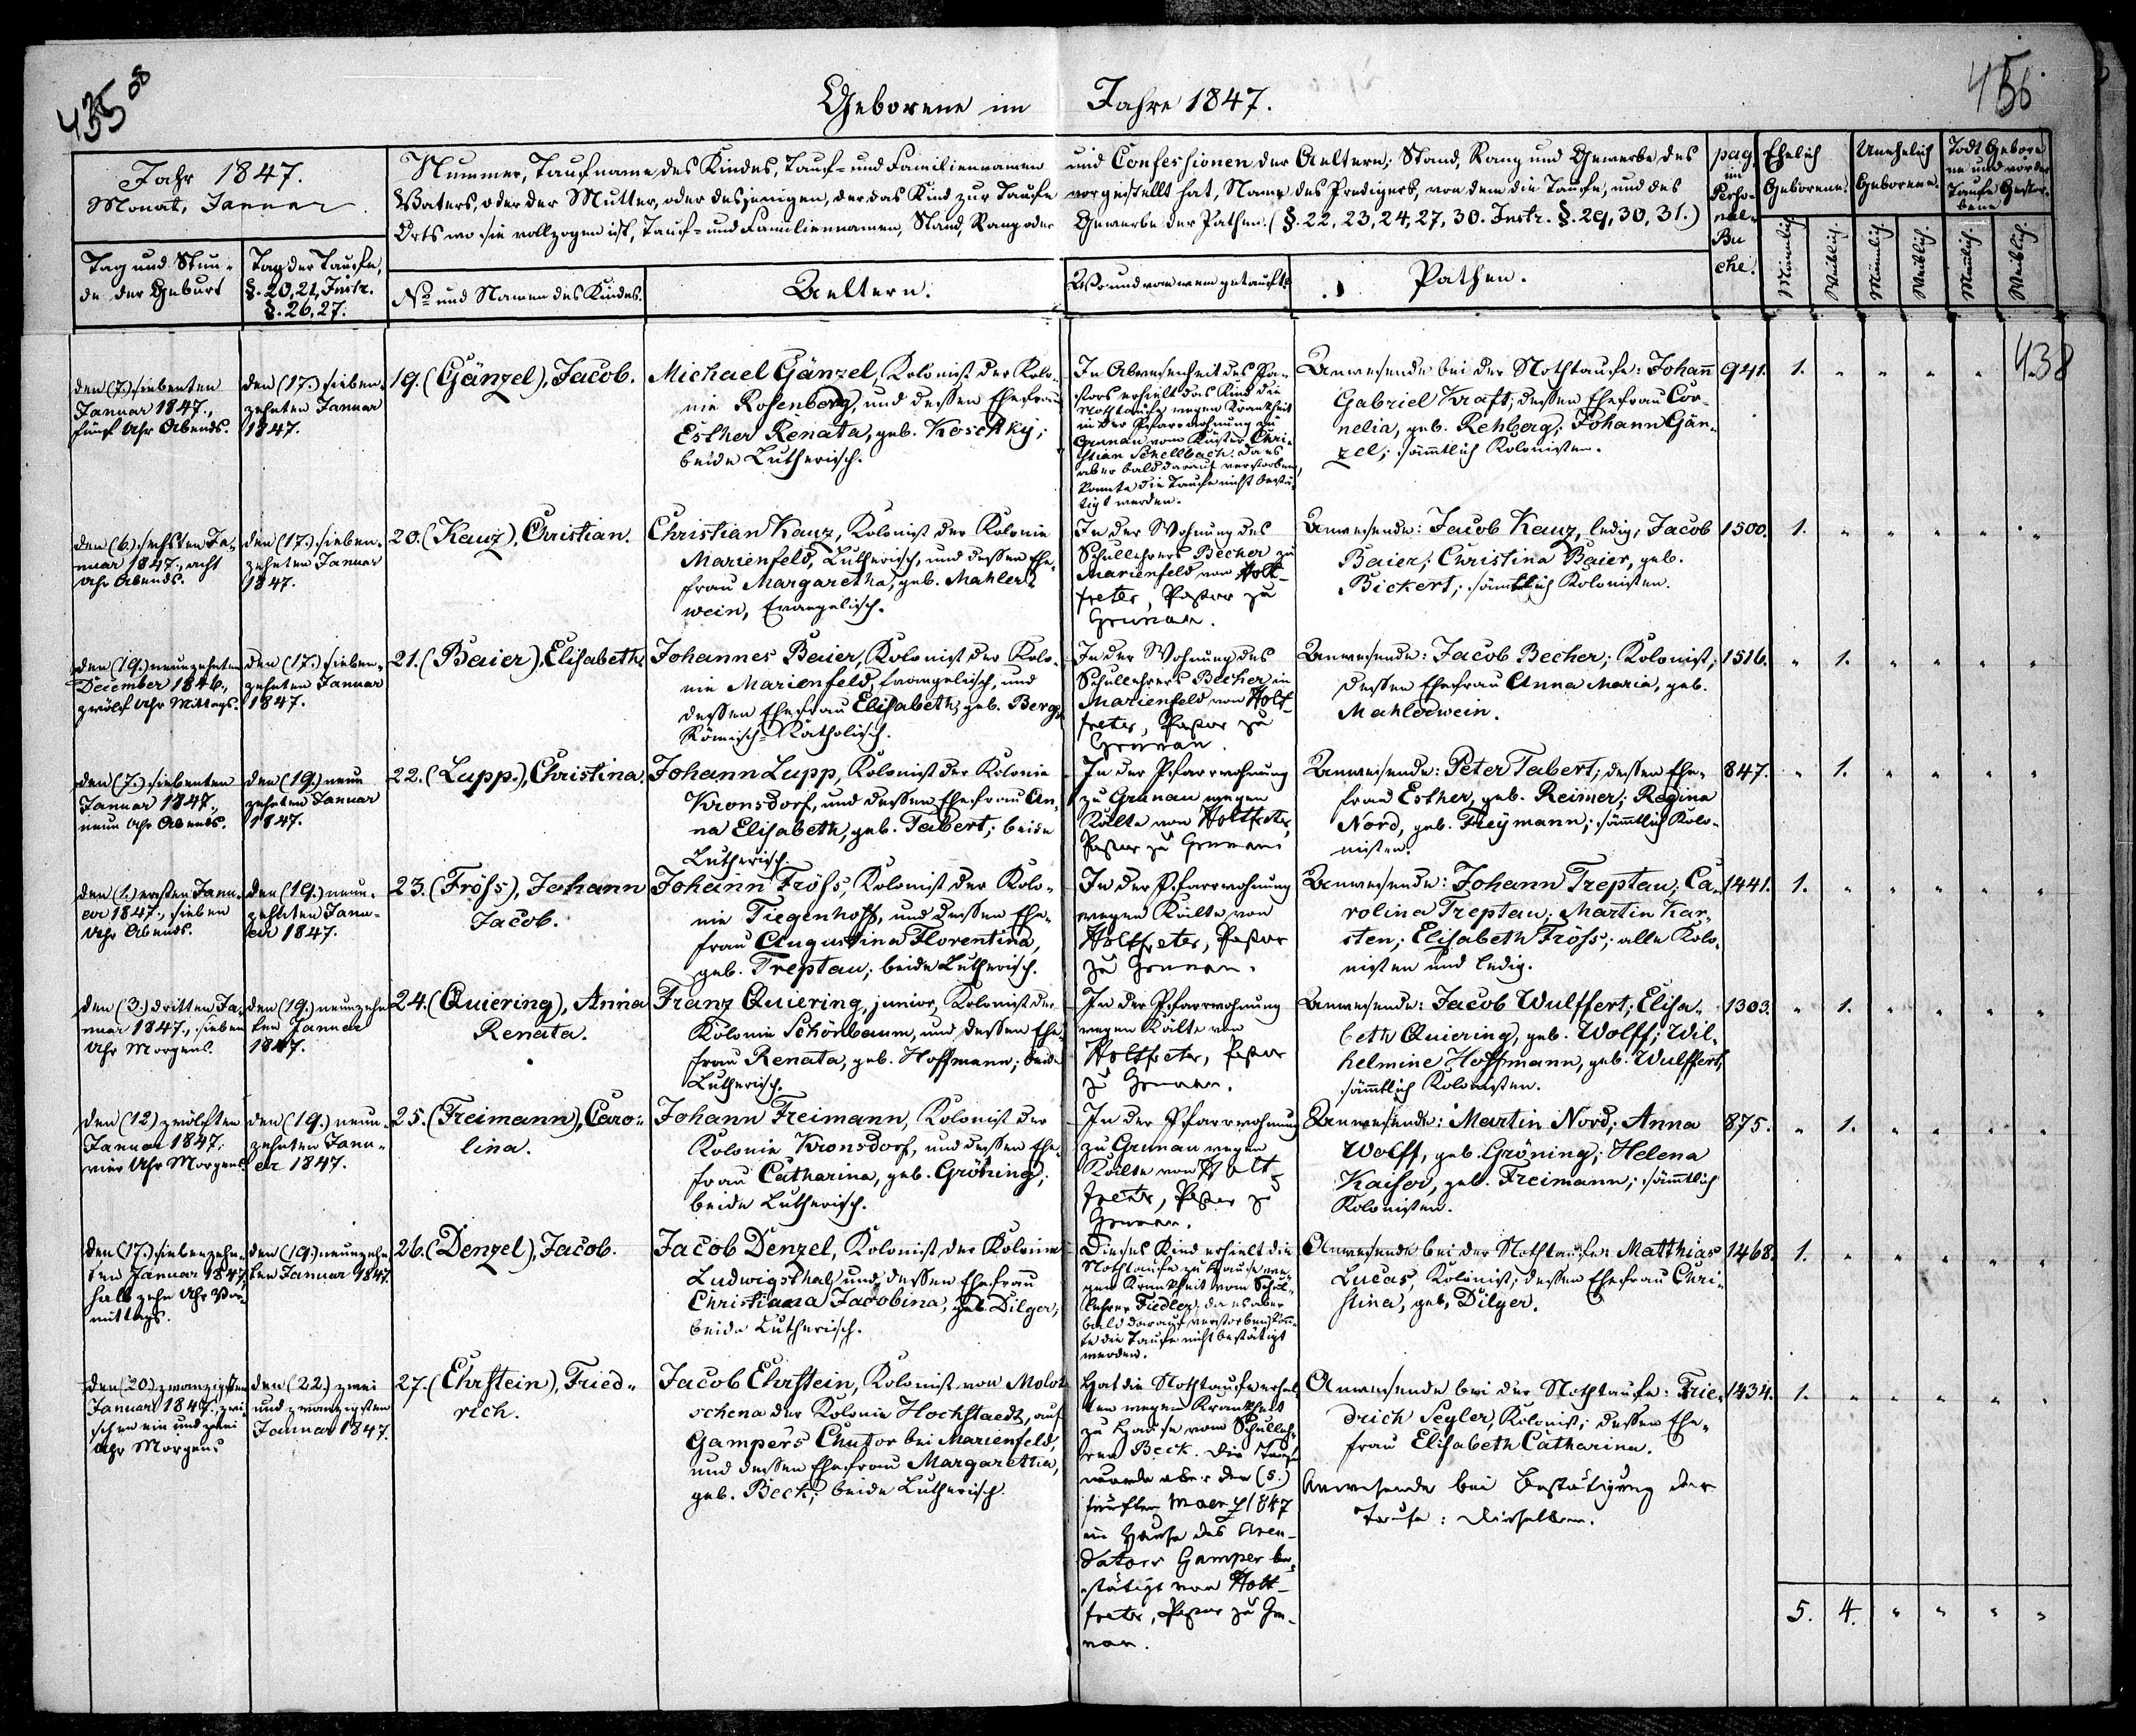 435
456
438
Geborene im Jahre 1847.
Jahr 1847.
Monat, Januar
Nummer, Taufname des Kindes, Tauf- und Familiennamen und Confessionen der Aeltern; Stand, Rang und Gewerbe des
Vaters, oder der Mutter, oder desjenigen, der das Kind zur Taufe vorgestellt hat, Name des Predigers, von dem die Taufe, und des
Orts wo sie vollzogen ist, Tauf- und Familiennamen, Stand, Rang oder Gewerbe der Pathen. (§. 22, 23, 24, 27, 30. Instr. §. 29, 30, 31.)
pag.
im
Perso-
nal-
Bu
che.
Ehelich
Geborene.
Unehelich
Geborene.
Todt Gebore
ne und vor der
Taufe Gestor-
bene
Männlich
Weiblich.
Männlich
Weiblich
Männlich
Weiblich
Tag und Stun-
de der Geburt
Tag der Taufe,
§. 20, 21, Instr.
§. 26, 27.
No und Namen des Kindes.
Aeltern.
Wo und von wem getauft.
Pathen.
den (7.) siebenten
Januar 1847.,
fünf Uhr Abends.
den (17.) sieben-
zehnten Januar
1847.
19. (Gänzel), Jacob.
Michael Gänzel, Kolonist der Kolo-
nie Rosenberg, und dessen Ehefrau
Esther Renata, geb. Koschky;
beide Lutherisch.
In Abwesenheit des Pa-
stors erhielt das Kind die
Nothtaufe wegen Krankheit
in der Pfarrwohnung zu
Grunau vom Küster Chri-
stian Schellbach. Da es
aber bald darauf verstorben,
konnte die Taufe nicht bestä-
tigt werden.
Anwesende bei der Nothtaufe: Johann
Gabriel Kraft; dessen Ehefrau Cor-
nelia, geb. Rehberg; Johann Gän-
zel; sämmtlich Kolonisten.
941. 1. " " " "
den (6.) sechsten Ja-
nuar 1847., acht
Uhr Abends.
den (17.) sieben-
zehnten Januar
1847.
20. (Kauz), Christian.
Christian Kauz, Kolonist der Kolonie
Marienfeld, Lutherisch, und dessen Ehe-
frau Margaretha, geb. Mahler-
wein, Evangelisch.
In der Wohnung des
Schullehrers Becher zu
Marienfeld von Holt-
freter, Pastor zu
Grunau.
Anwesende: Jacob Kauz, ledig; Jacob
Baier; Christina Baier, geb.
Bickert; sämmtlich Kolonisten.
1500. 1. " " " " "
den (19.) neunzehnten
December 1846.,
zwölf Uhr Mittags.
den (17.) sieben-
zehnten Januar
1847.
21. (Baier), Elisabeth.
Johannes Baier, Kolonist der Kolo-
nie Marienfeld, Evangelisch, und
dessen Ehefrau Elisabeth, geb. Berg,
Römisch-Katholisch.
In der Wohnung des
Schullehrers Becher in
Marienfeld von Holt-
freter, Pastor zu
Grunau.
Anwesende: Jacob Becher; Kolonist;
dessen Ehefrau Anna Maria, geb.
Mahlerwein.
1516. " 1. " " " "
den (7.) siebenten
Januar 1847.,
neun Uhr Abends.
den (19.) neun
zehnten Januar
1847.
22. (Lupp.), Christina.
Johann Lupp, Kolonist der Kolonie
Kronsdorf, und dessen Ehefrau An-
na Elisabeth, geb. Tabert; beide
Lutherisch.
In der Pfarrwohnung
zu Grunau wegen
Kälte von Holtfreter,
Pastor zu Grunau
Anwesende: Peter Tabert; dessen Ehe-
frau Esther, geb. Reimer; Regina
Nord, geb. Freymann; sämmtlich Kolo-
nisten.
847. " 1. " " " "
den (1.) ersten Janu-
ar 1847., sieben
Uhr Abends.
den (19.) neun-
zehnten Janu-
ar 1847.
23. (Fröss), Johann
Jacob.
Johann Fröss, Kolonist der Kolo-
nie Tiegenhoff, und dessen Ehe-
frau Augustina Florentina,
geb. Treptau; beide Lutherisch.
In der Pfarrwohnung
wegen Kälte von
Holtfreter, Pastor
zu Grunau.
Anwesende: Johann Treptau; Ca-
rolina Treptau; Martin Kar-
sten; Elisabeth Fröss; alle Kolo-
nisten und ledig.
1441. 1. " " " " "
den (3.) dritten Ja-
nuar 1847., sieben
Uhr Morgens.
den (19.) neunzehn
ten Januar
1847.
24. (Quiering), Anna
Renata.
Franz Quiering, junior, Kolonist der
Kolonie Schönbaum, und dessen Ehe-
frau Renata, geb. Hoffmann; beide
Lutherisch.
In der Pfarrwohnung
wegen Kälte von
Holtfreter, Pastor
zu Grunau.
Anwesende: Jacob Wulffert; Elisa-
beth Quiering, geb. Wolff; Wil-
helmine Hoffmann, geb. Wulffert;
sämmtlich Kolonisten.
1303. " 1. " " " "
den (12) zwölften
Januar 1847;
vier Uhr Morgens
den (19.) neun-
zehnten Janu-
ar 1847.
25. (Freimann), Caro-
lina.
Johann Freimann, Kolonist der
Kolonie Kronsdorf, und dessen Ehe-
frau Catharina, geb. Gröning;
beide Lutherisch.
In der Pfarrwohnung
zu Grunau wegen
Kälte von Holt-
freter, Pastor zu
Grunau.
Anwesende: Martin Nord; Anna
Wolff, geb. Gröning; Helena
Kaiser, geb. Freimann; sämmtlich
Kolonisten.
875. " 1. " " " "
den (17.) siebenzehn-
ten Januar 1847,
halb zehn Uhr Vor-
mittags.
den (19.) neunzehn
ten Januar 1847.
26. (Denzel), Jacob.
Jacob Denzel, Kolonist der Kolonie
Ludwigsthal, und dessen Ehefrau
Christiana Jacobina, geb. Dilger;
beide Lutherisch.
Dieses Kind erhielt die
Nothtaufe zu Hause we-
gen Krankheit vom Schul-
lehrer Fiedler; da es aber
bald darauf verstorben, konn-
te die Taufe nicht bestätigt
werden.
Anwesende bei der Nothtaufe: Matthias
Lucas, Kolonist; dessen Ehefrau Chri-
stina, geb. Dilger.
1468. 1. " " " " "
den (20.) zwanzigsten
Januar 1847; zwi-
schen ein und zwei
Uhr Morgens
den (22.) zwei
und zwanzigsten
Januar 1847.
27. (Ehrstein), Fried-
rich.
Jacob Ehrstein, Kolonist von Molot
schena der Kolonie Hochstaedt, auf
Gampers Chutor bei Marienfeld,
und dessen Ehefrau Margaretha,
geb. Beck; beide Lutherisch.
Hat die Nothtaufe erhal
ten wegen Krankheit
zu Hause vom Schulleh-
rer Beck. Die Taufe
wurde aber den (5.)
fünften Maerz 1847
im Hause des Aren-
dators Gamper be-
stätigt von Holt-
freter, Pastor zu Gru-
nau.
Anwesende bei der Nothtaufe: Frie-
drich Segler, Kolonist; dessen Ehe-
frau Elisabeth Catharina.
Anwesende bei Bestätigung der
Taufe: dieselben.
1434. 1. " " " " "
5. 4. " " " "